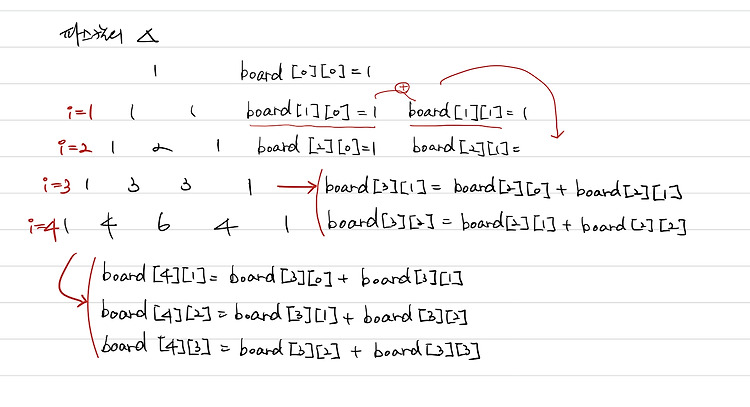 파스칼의 △
1 board [0][0] = 1
i=1 1 1 board [1][0] = 1 + board [1][1] = 1
i=2 1 2 1 board [2][0]=1 board [2][1]=
i=3 1 3 3 1 → board [3][1] = board [2][0] + board [2][1]
board [3][2] = board [2][1] + board [2][2]
i=4 1 4 6 4 1
board [4][1] = board [3][0] + board [3][1]
board [4][2] = board [3][1] + board [3][2]
board [4][3] = board [3][2] + board [3][3]